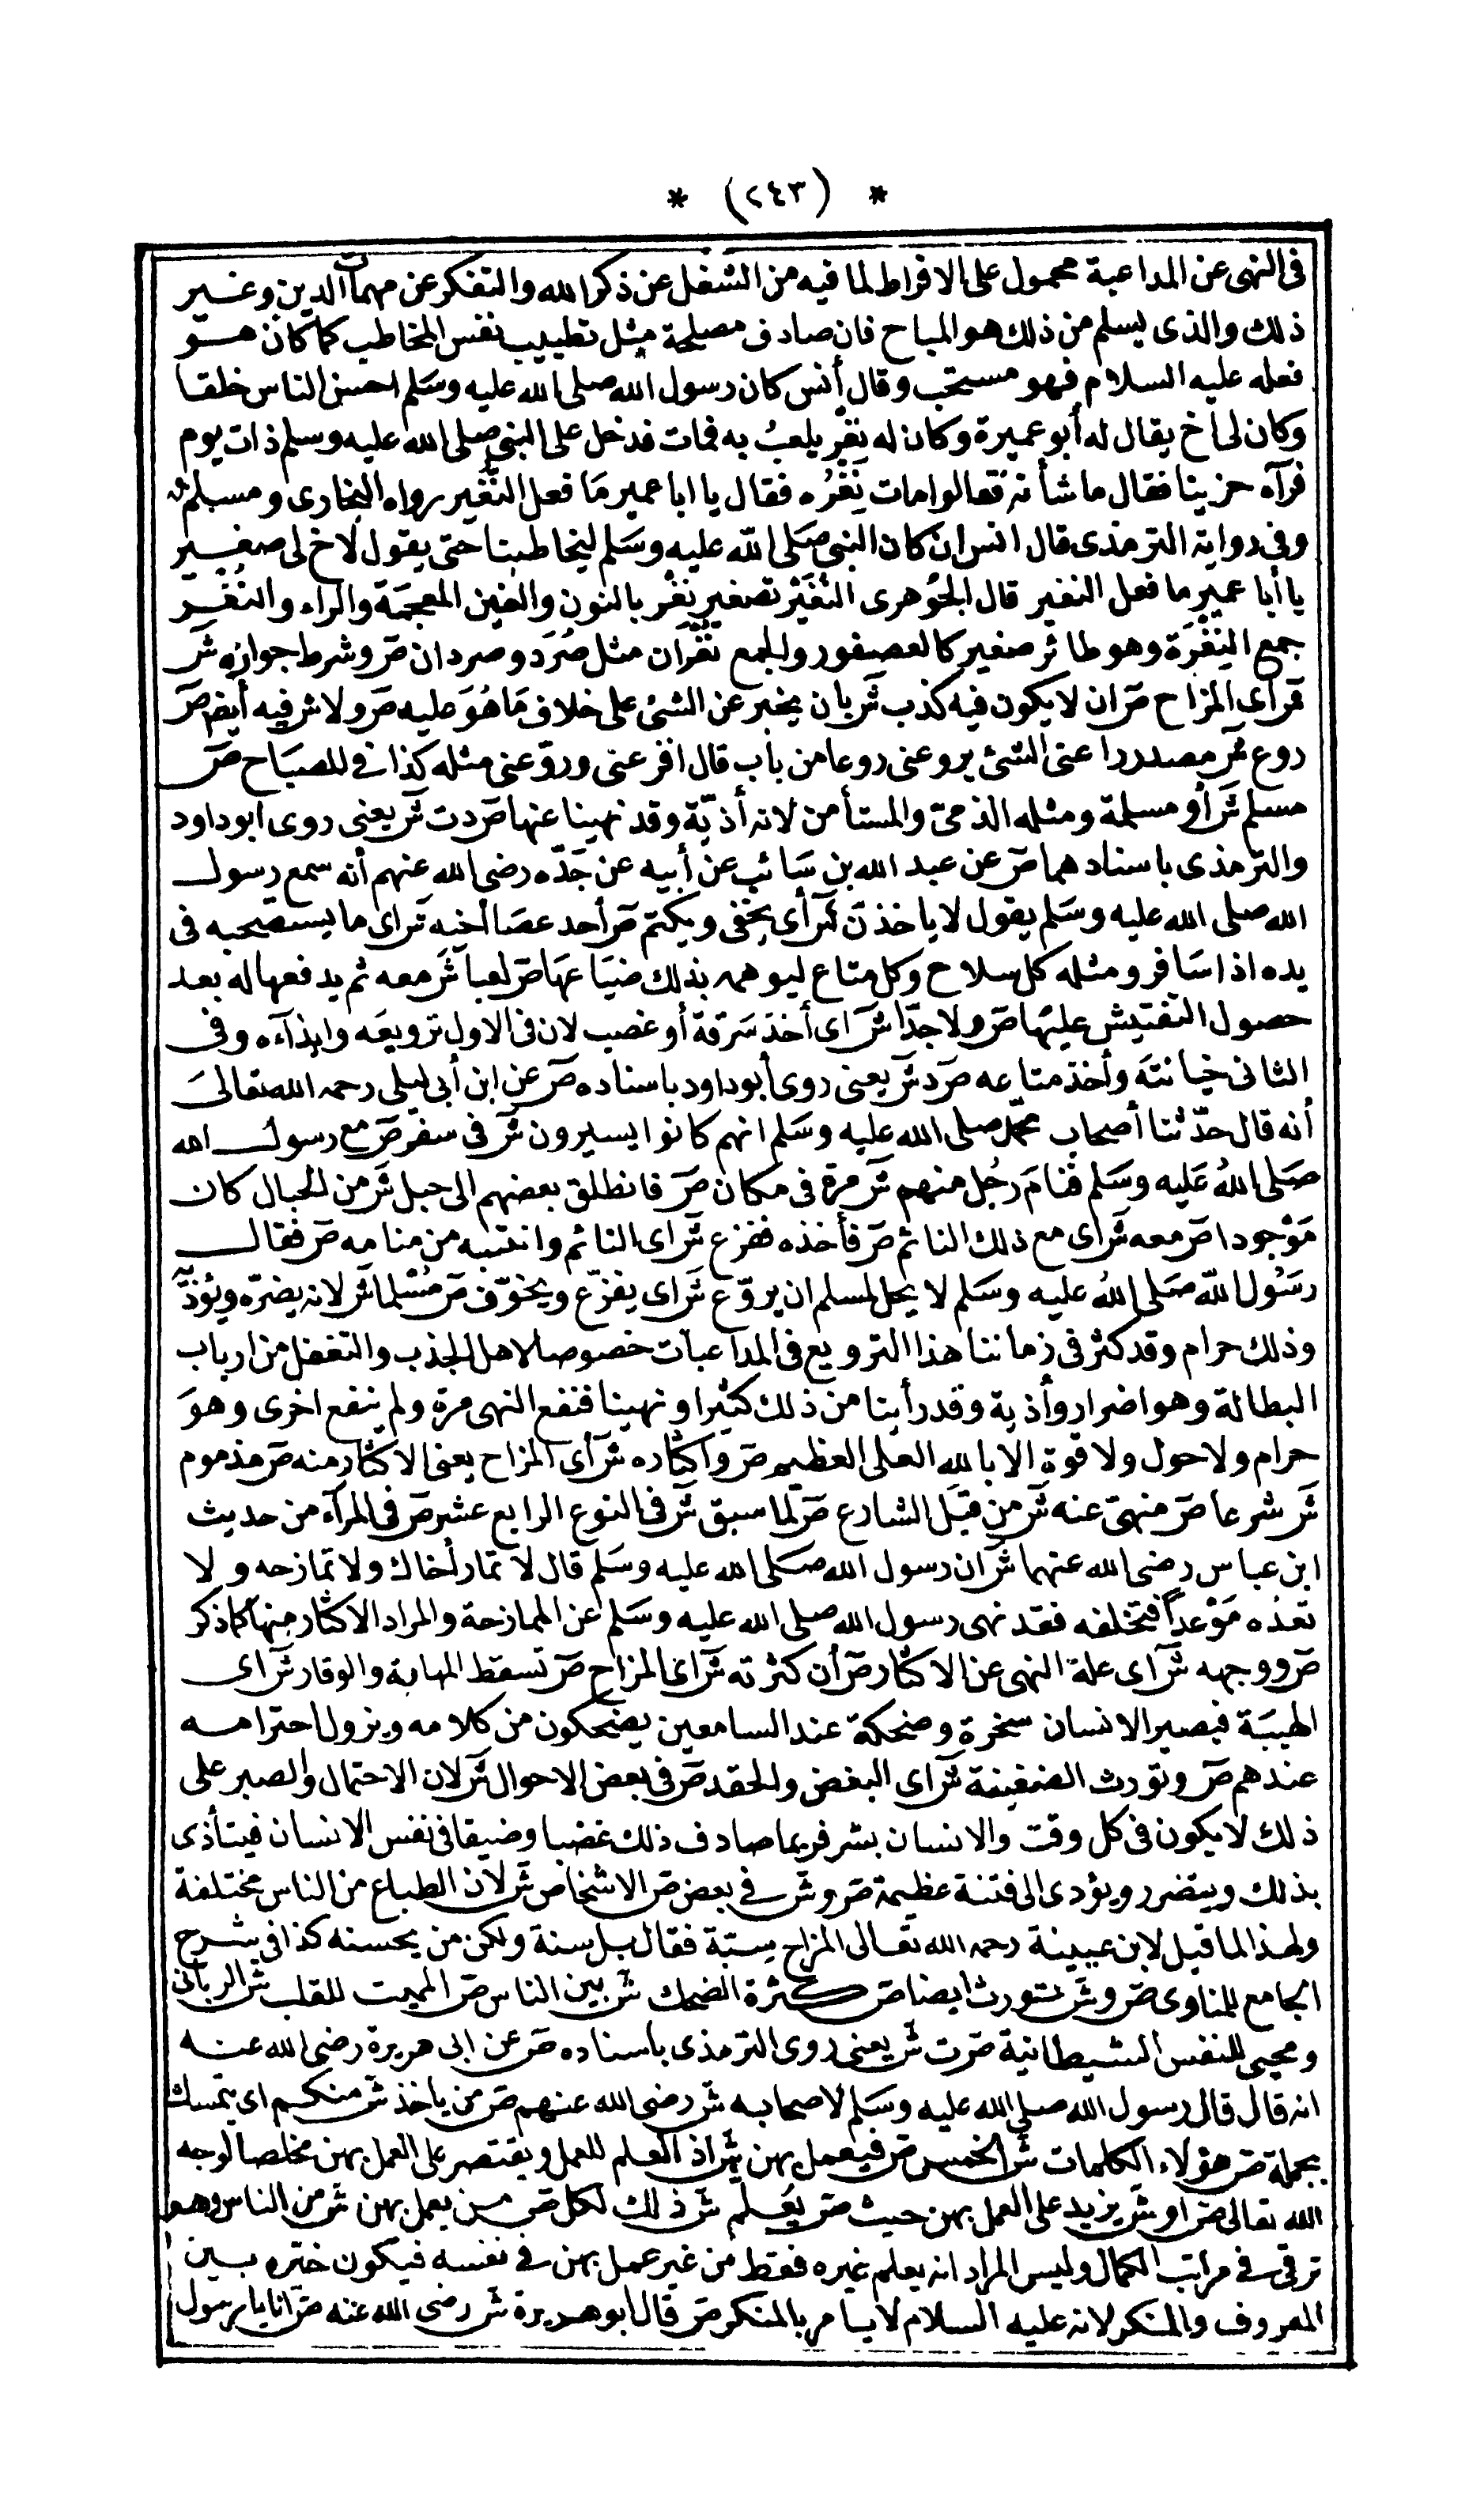 * (٢٤٣) *
فى النهى عن المداعبة محمول على الافراط لما فيه من الشغل عن ذكر الله والتفكر عن مهمات الدين وغير
ذلك والذى يسلم من ذلك هو المباح فان صادف مصلحة مثل تطييب نفس المخاطب كما كان هو
فعله عليه السلام فهو مستحب وقال أنس كان رسول الله صلى الله عليه وسلم احسن الناس خلقا
وكان لى اخ يقال له أبو عميرة وكان له نغر يلعب به فمات فدخل على النبى صلى الله عليه وسلم ذات يوم
فرآه حزينا فقال ما شأنه فقالوا مات نغره فقال يا ابا عمير ما فعل النغير رواه البخارى ومسلم
وفى رواية الترمذى قال انس ان كان النبى صلى الله عليه وسلم ليخاطبنا حتى يقول لاخ لى صغير
يا أبا عمير ما فعل النغير قال الجوهرى النغير تصغير نغر بالنون والغين المعجمة والراء والنغر
جمع النغرة وهو طائر صغير كالعصفور والجمع نغران مثل صرد وصردان ص وشرط جوازه ش
اى المزاح ص ان لا يكون فيه كذب ش بان يخبر عن الشئ على خلاف ما هو عليه ص ولا ش فيه أيضا ص
روع ش مصدر راعنى الشئ يروعنى روعا من باب قال افزعنى وروعنى مثله كذا فى المصباح ص
مسلم ش أو مسلمة ومثله الذمى والمستأمن لانه أذية وقد نهينا عنها ص دت ش يعنى روى ابو داود
والترمذى باسنادهما ص عن عبد الله بن سائب عن أبيه عن جده رضى الله عنهم أنه سمع رسول
الله صلى الله عليه وسلم يقول لا ياخذن ش أى يخفى ويكتم ص أحد عصا أخيه ش اى ما يستصحبه فى
يده اذا سافر ومثله كل سلاح وكل متاع ليوهمه بذلك ضياعها ص لعبا ش معه ثم يدفعها له بعد
حصول التفتيش عليها ص ولا جدا ش اى أخذ سرقة أو غصب لان فى الاول ترويعه وايذآءه وفى
الثانى خيانته وأخذ متاعه ص د ش يعنى روى أبو داود باسناده ص عن ابن أبى ليلى رحمه الله تعالى
أنه قال حدثنا أصحاب محمد صلى الله عليه وسلم انهم كانوا يسيرون ش فى سفر ص مع رسول الله
صلى الله عليه وسلم فنام رجل منهم ش مرة فى مكان ص فانطلق بعضهم الى حبل ش من الحبال كان
موجودا ص معه ش اى مع ذلك النائم ص فأخذه ففزع ش اى النائم وانتبه من منامه ص فقال
رسول الله صلى الله عليه وسلم لا يحل لمسلم ان يروع ش اى يفزع ويخوف ص مسلما ش لانه يضره ويؤذيه
وذلك حرام وقد كثر فى زماننا هذا الترويع فى المداعبات خصوصا لاهل الجذب والتغفل من ارباب
البطالة وهو اضرار وأذية وقد رأينا من ذلك كثيرا ونهينا فنفع النهى مرة ولم ينفع اخرى وهو
حرام ولا حول ولا قوة الا بالله العلى العظيم ص واكثاره ش أى المزاح يعنى الاكثار منه ص مذموم
ش شرعا ص منهى عنه ش من قبل الشارع ص لما سبق ش فى النوع الرابع عشر ص فى المرآء من حديث
ابن عباس رضى الله عنهما ش ان رسول الله صلى الله عليه وسلم قال لا تمار أخاك ولا تمازحه ولا
تعده موعدا فتخلفه فقد نهى رسول الله صلى الله عليه وسلم عن الممازحة والمراد الاكثار منها كما ذكر
ص ووجهه ش اى علة النهى عن الاكثار ص أن كثرته ش اى المزاح ص تسقط المهابة والوقار ش اى
الهيبة فيصير الانسان سخرة وضحكة عند السامعين يضحكون من كلامه ويزول احترامه
عندهم ص وتورث الضغينة ش اى البغض والحقد ص فى بعض الاحوال ش لان الاحتمال والصبر على
ذلك لا يكون فى كل وقت والانسان بشر فربما صادف ذلك غضبا وضيقا فى نفس الانسان فيتأذى
بذلك ويتضرر ويؤدى الى فتنة عظيمة ص و ش فى بعض ص الاشخاص ش لان الطباع من الناس مختلفة
ولهذا لما قيل لابن عيينة رحمه الله تعالى المزاح سبة فقال بل سنة ولكن من يحسنه كذا فى شرح
الجامع للمناوى ص و ش تورث ايضا ص كثرة الضحك ش بين الناس ص المميت للقلب ش الربانى
ومحيى للنفس الشيطانية ص ت ش يعنى روى الترمذى باسناده ص عن ابى هريرة رضى الله عنه
انه قال قال رسول الله صلى الله عليه وسلم لاصحابه ش رضى الله عنهم ص من ياخذ ش منكم اى يتمسك
بجملة ص هؤلاء الكلمات ش الخمس ص فيعمل بهن ش اذ العلم للعمل ويقتصر على العمل بهن مخلصا لوجه
الله تعالى ص او ش يزيد على العمل بهن حيث ص يعلم ش ذلك لكل ص من يعمل بهن ش من الناس وهو
ترقى فى مراتب الكمال وليس المراد انه يعلم غيره فقط من غير عمل بهن فى نفسه فيكون خيره بين
المعروف والمنكر لانه عليه السلام لا يامر بالمنكر ص قال ابو هريرة ش رضى الله عنه ص انا يا رسول